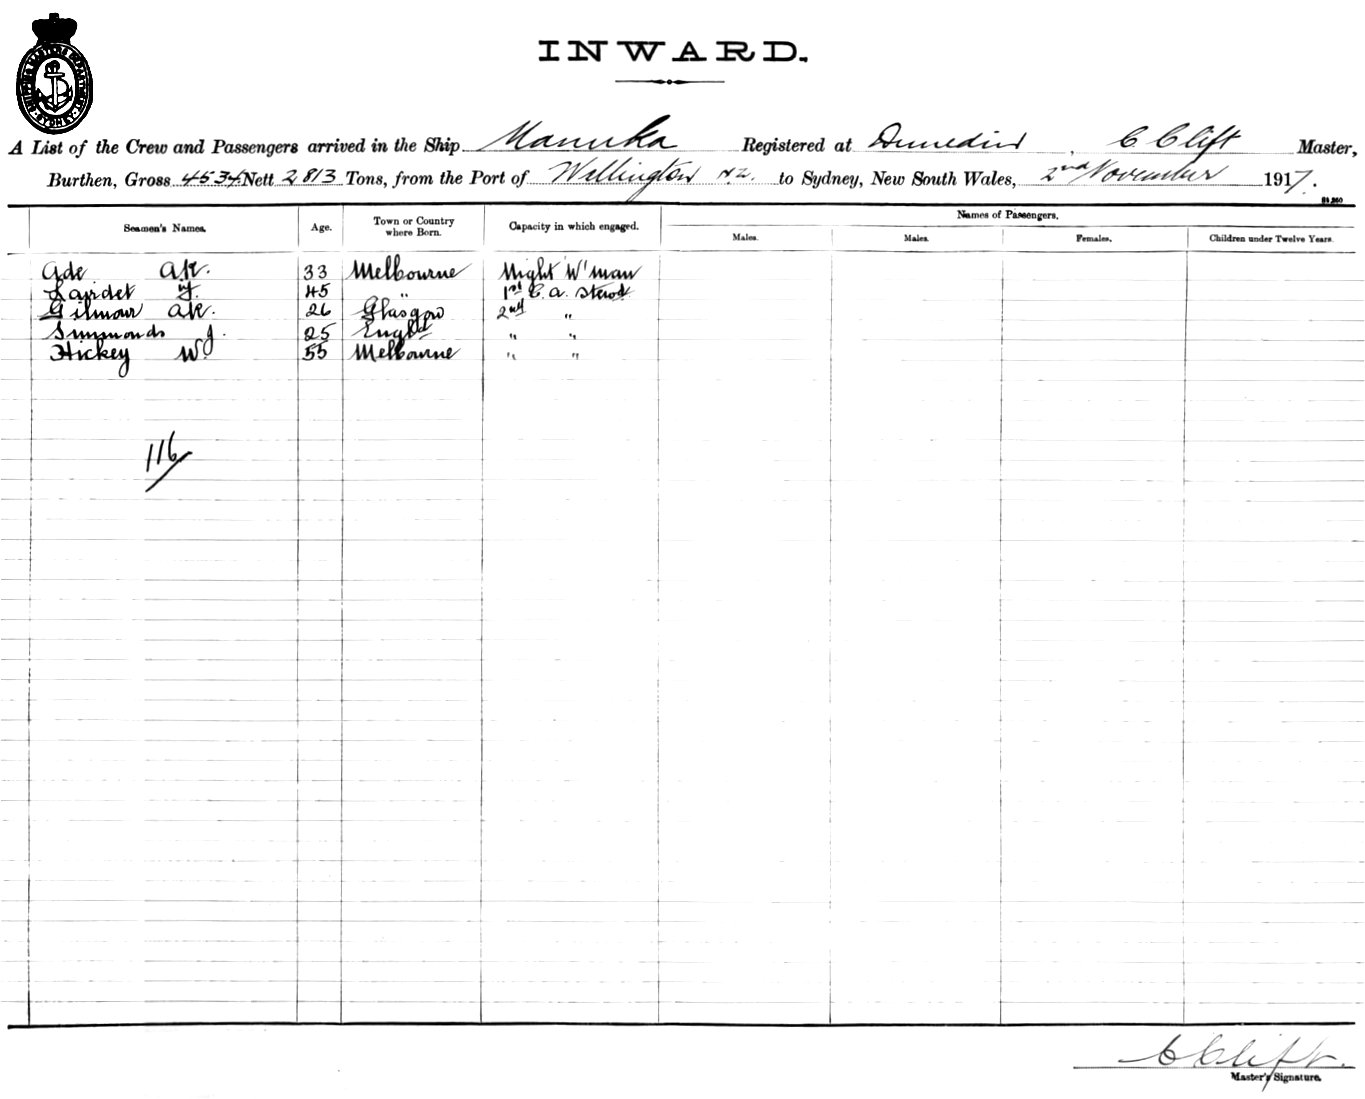 SHIPPING MASTERS DEPARTMENT SYDNEY
INWARD.
A List of the Crew and Passengers arrived in the Ship Manuka Registered at Dunedin, C Clift Master,
Burthen, Gross 4534 Nett 2813 Tons, from the Port of Wellington N.Z. to Sydney, New South Wales, 2nd November 1917.
Names of Passengers.
Seamen's Names. Age. Town or Country where Born. Capacity in which engaged. Males. Males. Females. Children under Twelve Years.
Ade A.K. 33 Melbourne Night W'man
45 " 1st C.A. Stewd
Gilmour AK. 26 Glasgow 2nd "
Simmonds J. 25 Engld " "
Hickey W. 55 Melbourne " "
116
C Clift.
Master's Signature.